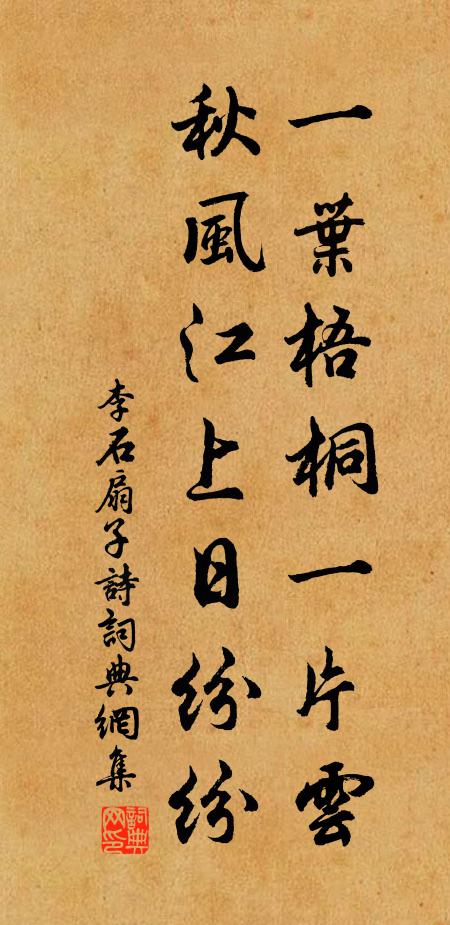 一葉梧桐一片雲
秋風江上日紛紛
李石扇子詩詞典網集
詞典
网印